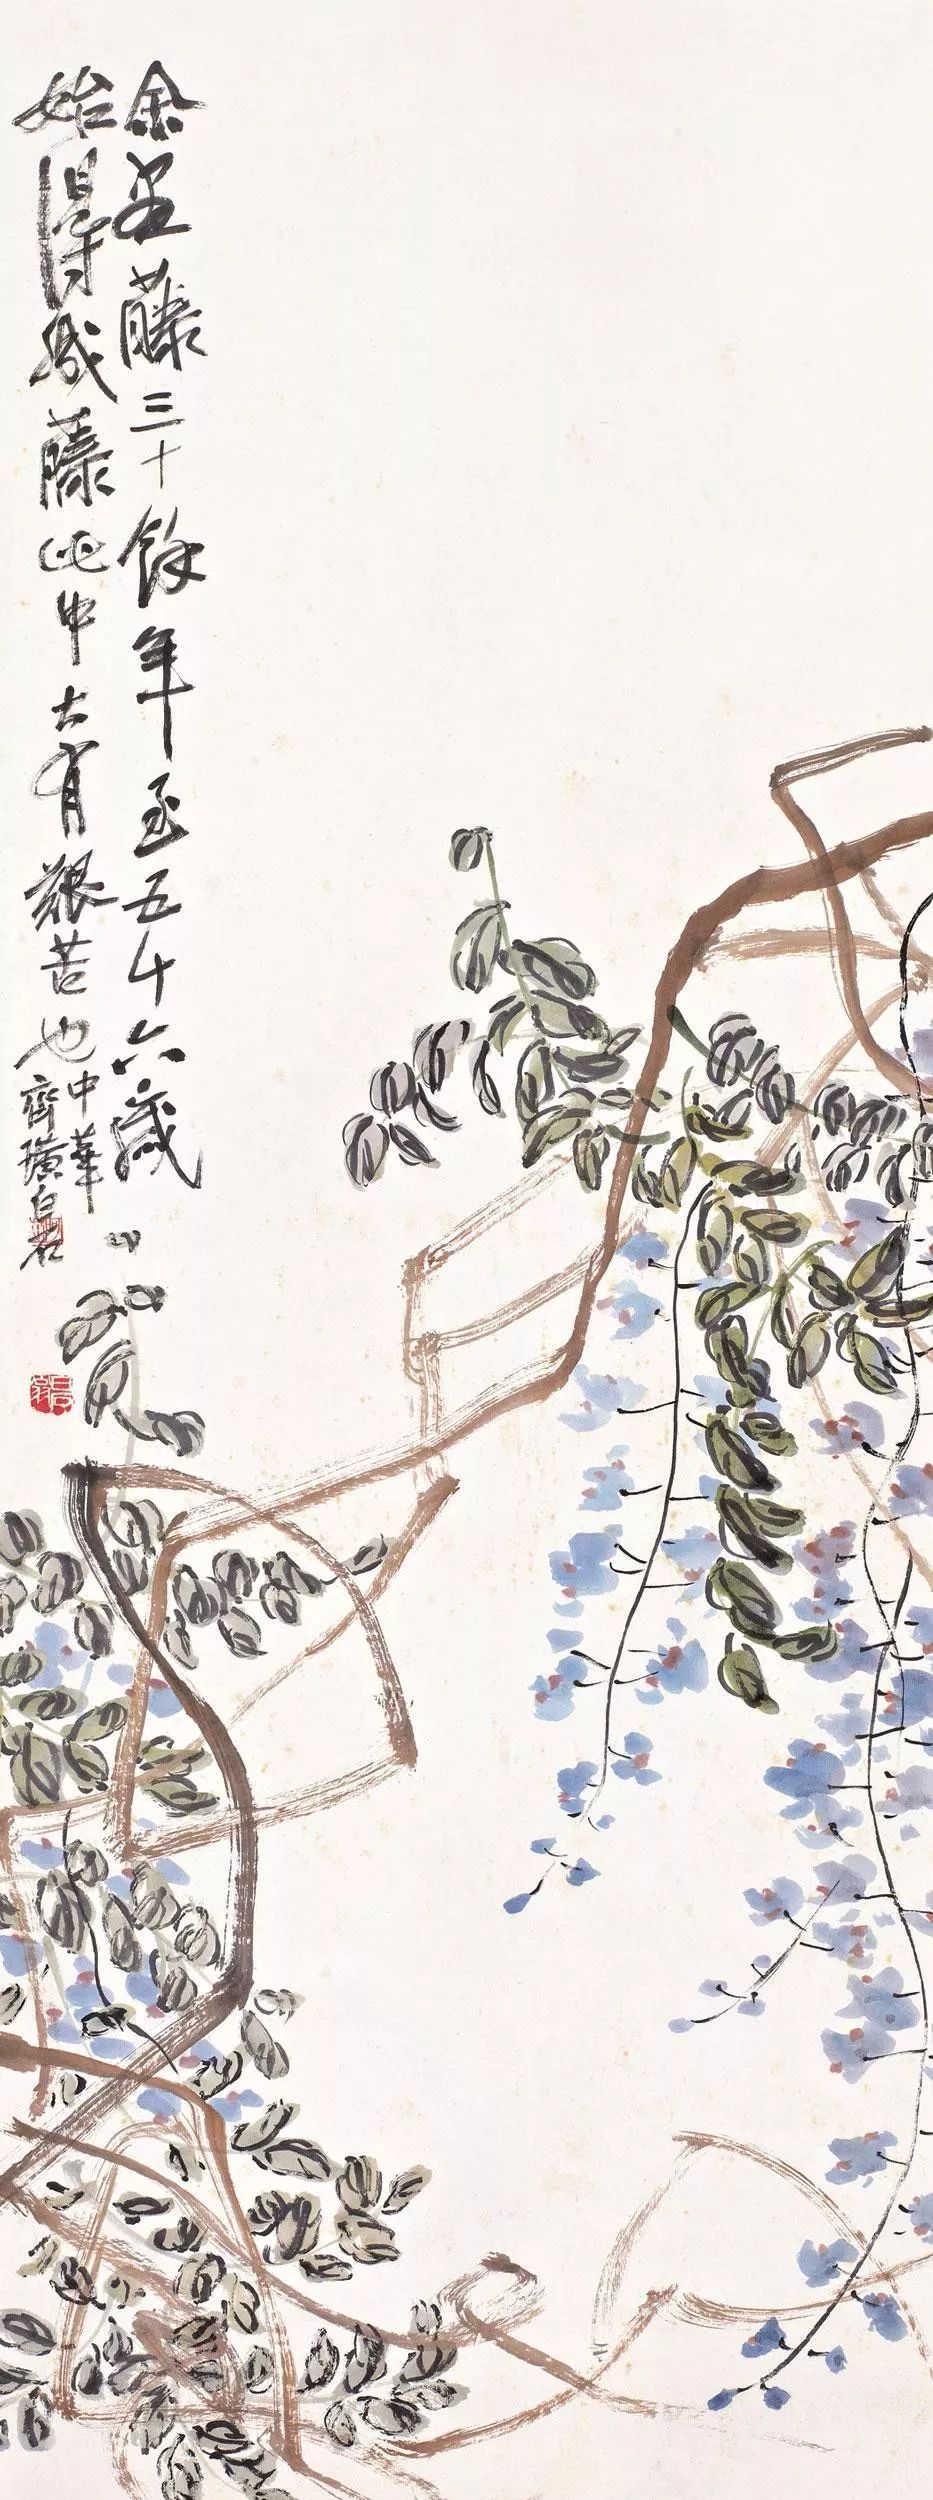 余畫藤三十餘年至五十六歲
始得成藤此中大有艱苦也
中華
齊璜白石